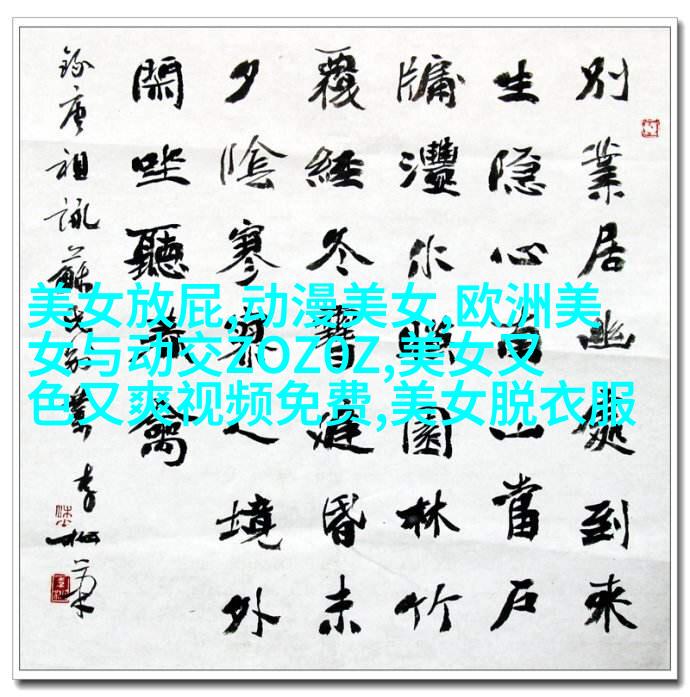 别業居幽處到來
生隐心南山當户
牖灃水映園林竹
覆經冬雪庭昏未
夕陰寥寥人境外
閑坐聽春禽
錄唐祖詠蘇氏别業
美女放屁,动漫美女,欧洲美
女与动交ZOZ0Z,美女又
色又爽视频免费,美女脱衣服